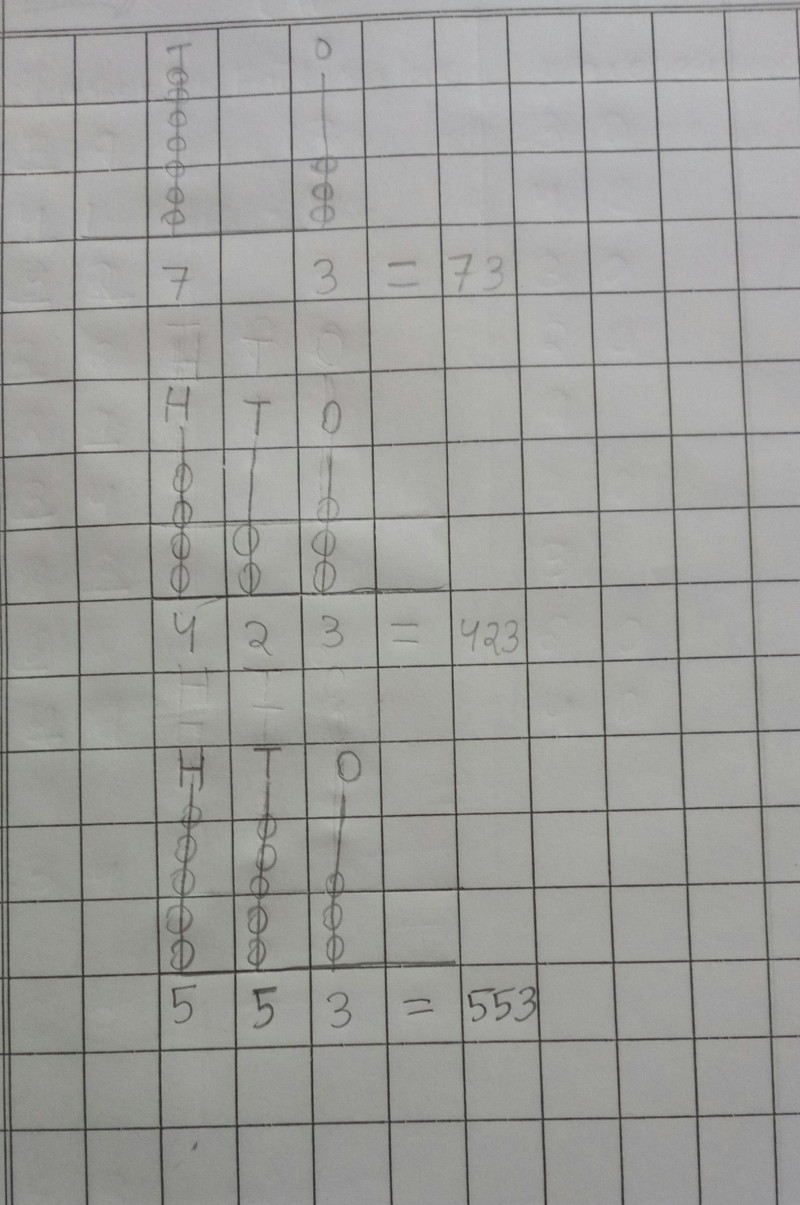 T O
7 3 = 73
H T O
4 2 3 = 423
H T O
5 5 3 = 553